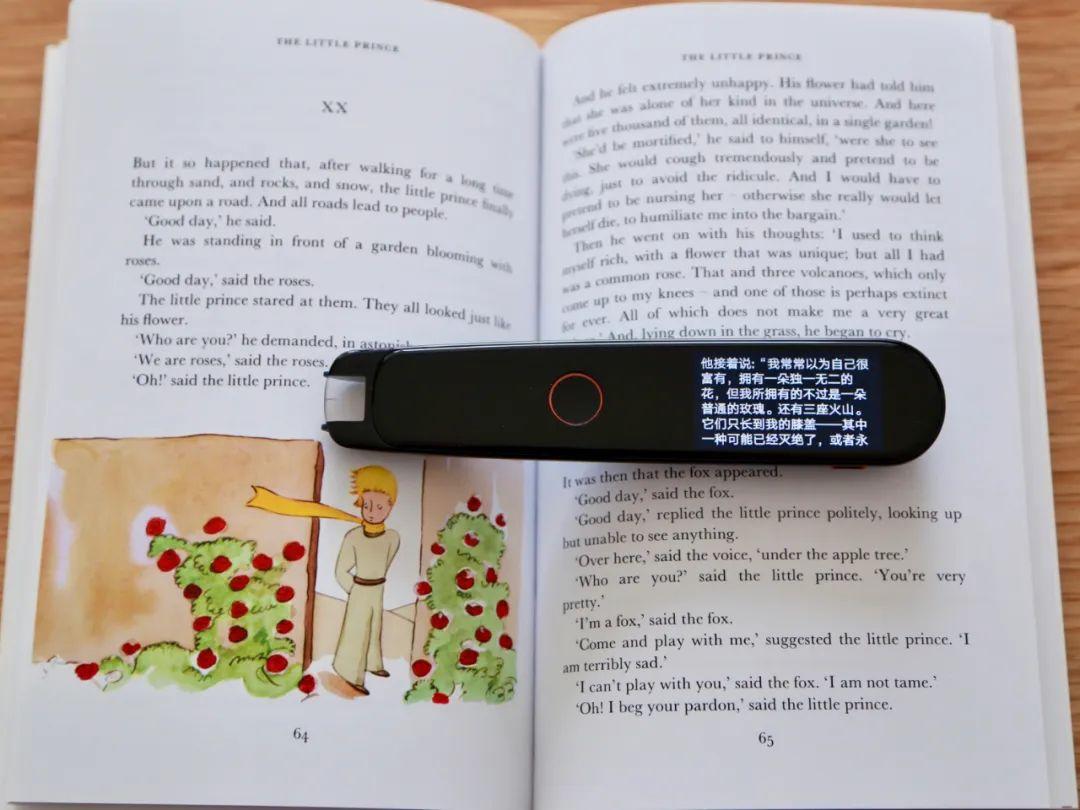 THE LITTLE PRINCE
XX
But it so happened that, after walking for a long time
through sand, and rocks, and snow, the little prince finally
came upon a road. And all roads lead to people.
‘Good day,’ he said.
He was standing in front of a garden blooming with
roses.
‘Good day,’ said the roses.
The little prince stared at them. They all looked just like
his flower.
‘Who are you?’ he demanded, in
‘We are roses,’ said the roses.
‘Oh!’ said the little prince.
64
THE LITTLE PRINCE
And he felt extremely unhappy. His flower had told him
that she was alone of her kind in the universe. And here
were five thousand of them, all identical, in a single garden!
‘She’d be mortified,’ he said to himself, ‘were she to see
this. She would cough tremendously and pretend to be
dying, just to avoid the ridicule. And I would have to
pretend to be nursing her – otherwise she really would let
herself die, to humiliate me into the bargain.’
Then he went on with his thoughts: ‘I used to think
myself rich, with a flower that was unique; but all I had
was a common rose. That and three volcanoes, which only
come up to my knees – and one of those is perhaps extinct
for ever. All of which does not make me a very great
And, lying down in the grass, he began to cry.
他接着说: “我常常以为自己很
富有，拥有一朵独一无二的
花，但我所拥有的不过是一朵
普通的玫瑰。还有三座火山。
它们只长到我的膝盖——其中
一种可能已经灭绝了，或者永
It was then that the fox appeared.
‘Good day,’ said the fox.
‘Good day,’ replied the little prince politely, looking up
but unable to see anything.
‘Over here,’ said the voice, ‘under the apple tree.’
‘Who are you?’ said the little prince. ‘You’re very
pretty.’
‘I’m a fox,’ said the fox.
‘Come and play with me,’ suggested the little prince. ‘I
am terribly sad.’
‘I can’t play with you,’ said the fox. ‘I am not tame.’
‘Oh! I beg your pardon,’ said the little prince.
65